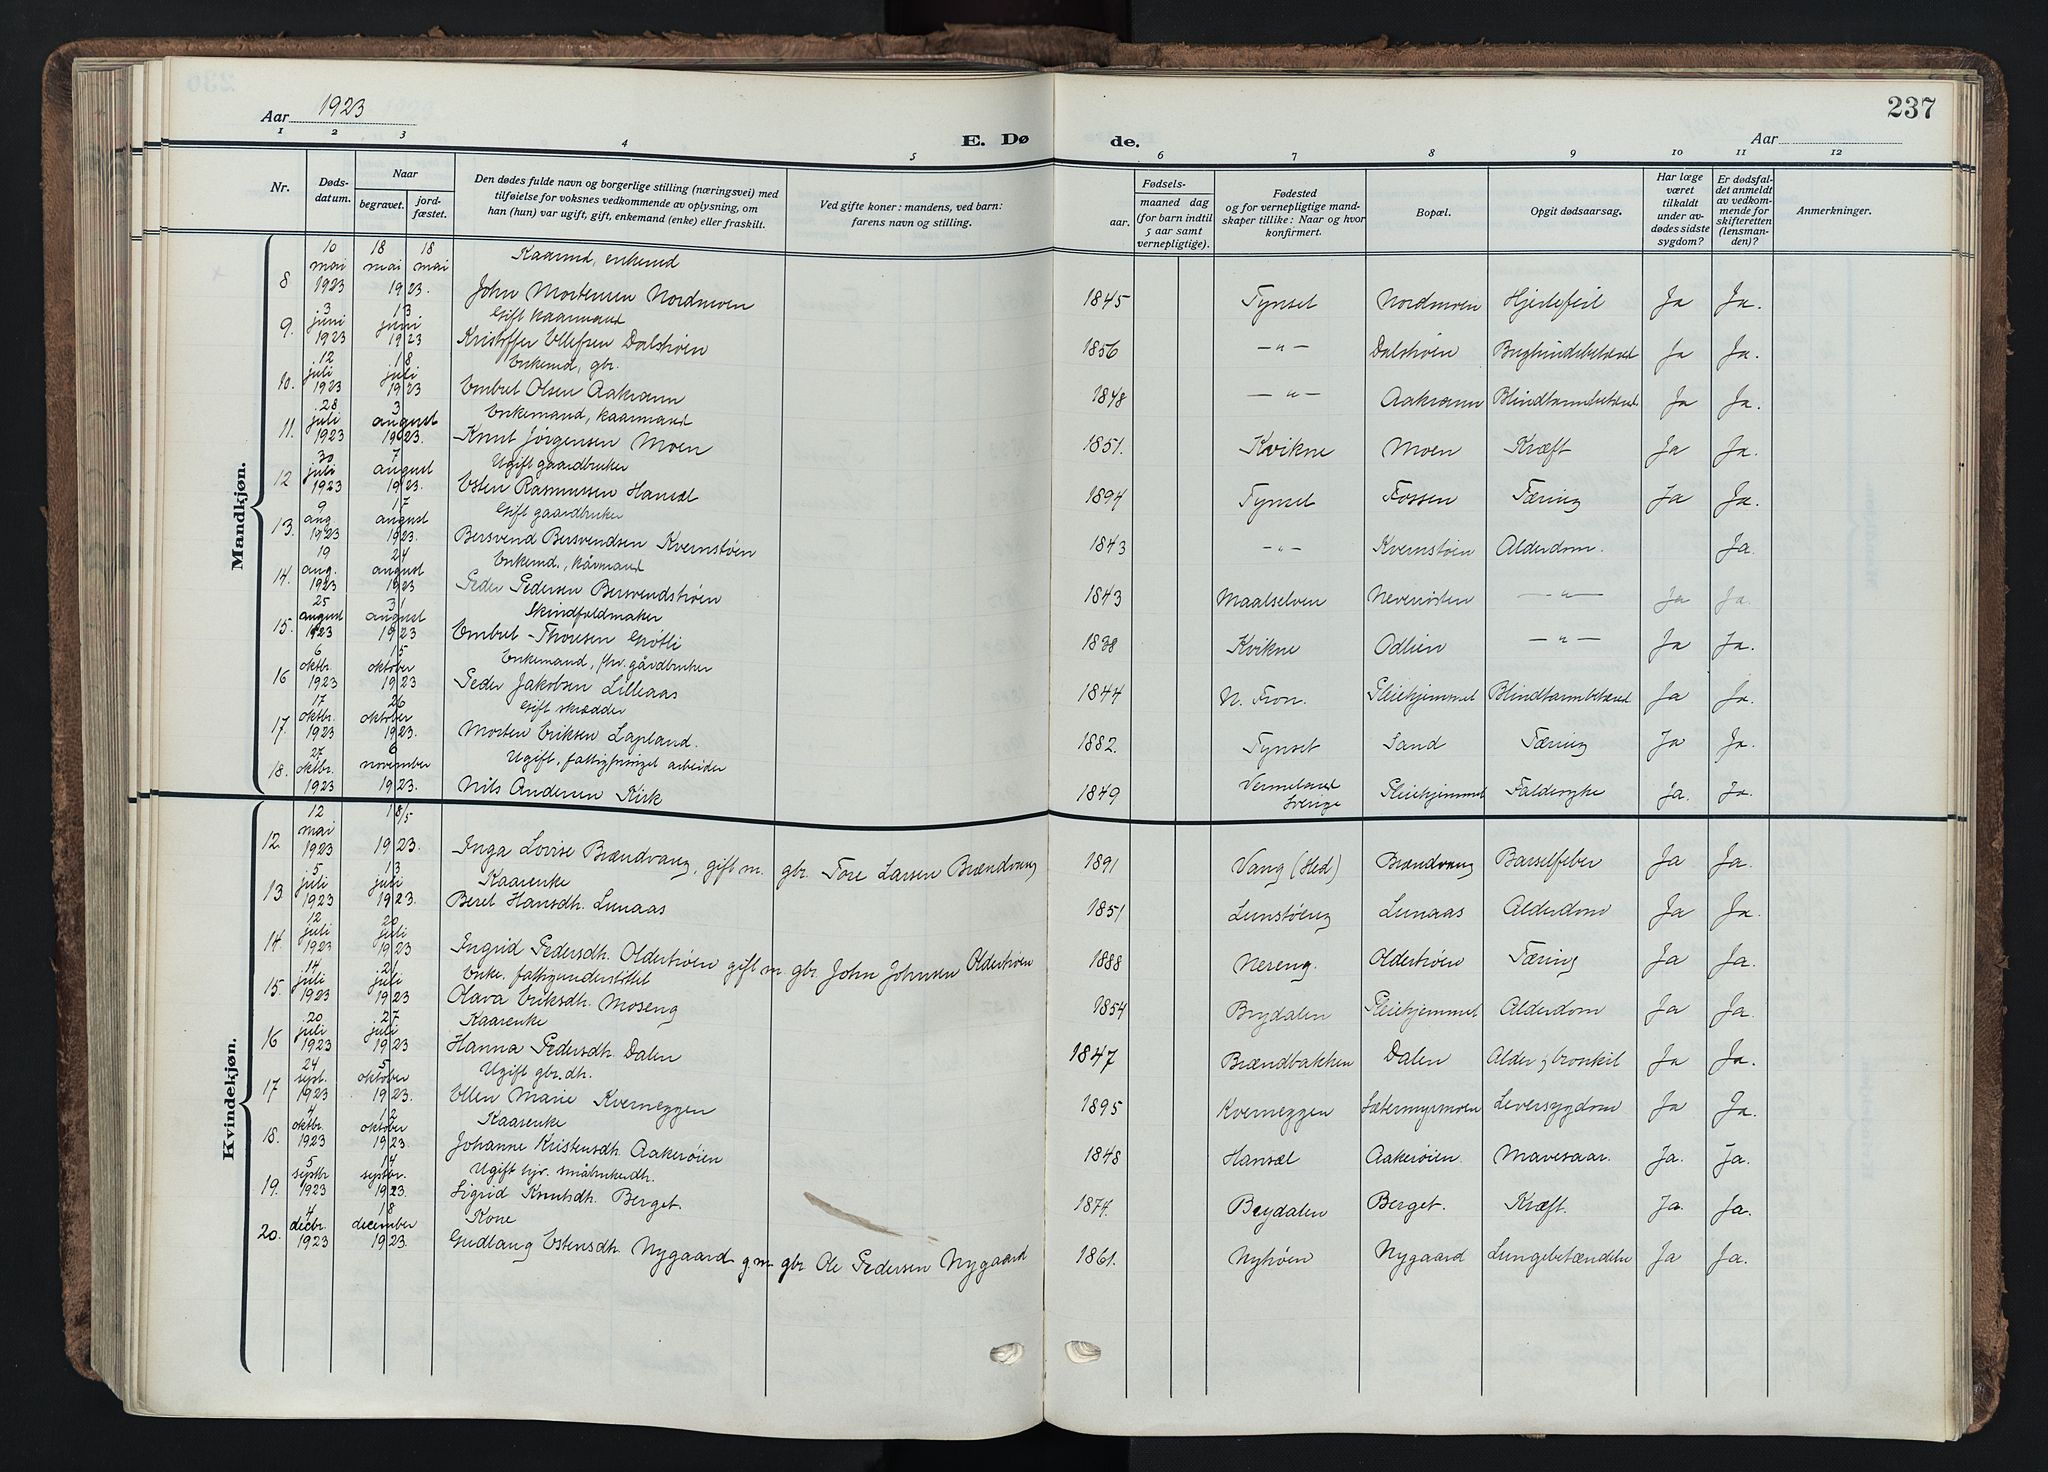 237
Aar 1923
E. Døde.
Aar
1 2 3 4 5 6 7 8 9 10 11 12
Nr.
Dødsdatum.
Naar
begravet.
jordfæstet.
Den dødes fulde navn og borgerlige stilling (næringsvei) med
tilføielse for voksnes vedkommende av oplysning, om
han (hun) var ugift, gift, enkemand (enke) eller fraskilt.
Ved gifte koner: mandens, ved barn:
farens navn og stilling.
Fødsels-
aar.
maaned dag
(for barn indtil
5 aar samt
vernepligtige).
Fødested
og for vernepligtige mandskaper tillike: Naar og hvor
konfirmert.
Bopæl.
Opgit dødsaarsag.
Har læge
været
tilkaldt
under avdødes sidste
sygdom?
Er dødsfaldet anmeldt
av vedkommende for
skifteretten
(lensmanden)?
Anmerkninger.
Mandkjøn.
Kaarmd, enkemd
8 10 mai 1923 18 mai 1923. 18 mai John Mortensen Nordmoen 1845 Tynset Nordmoen Hjertefeil Ja Ja.
Gift kaarmand
9. 3 juni 1923 13 juni 1923 Kristoffer Ellefsen Dalstrøen 1856 —"— Dalstrøen Ja Ja.
Enkemd, gbr.
10. 12 juli 1923 18 juli 1923 Embret Olsen Aakrann 1848 —"— Aakrann Blindtarmbetænd. Ja Ja.
Enkemand, kaarmand
11. 28 juli 1923 3 august 1923. Knut Jørgensen Moen 1851. Kvikne Moen Kræft Ja Ja.
Ugift gaardbruker
12 30 juli 1923 7 august 1923. Esten Rasmussen Hansæl 1894 Tynset Fossen Tæring Ja Ja.
Gift gaardbruker
13. 9 aug 1923 17 august 1923. Bersvend Bersvendsen Kvernstøen 1843 —"— Kvernstøen Alderdom. Ja.
Enkemd., kårmand
14. 19 aug. 1923 24 august 1923 Peder Pedersen Bersvendstrøen 1843 Maalselven —"— Ja Ja.
Skindfeldmaker
15. 25 august 1923 31 august 1923 Embret Thoresen Grøtli 1838 Kvikne Odlien —"— Ja Ja.
Enkemand, fhv. gårdbruker
16 6 oktbr. 1923 15 oktober 1923 Peder Jakobsen Lilleaas 1844 N. Fron. Pleiehjemmet Blindtarmbetænd Ja Ja.
Gift skrædder
17. 17 oktbr. 1923 26 oktober 1923. Morten Eriksen Lapland. 1882. Tynset Sand Tæring Ja Ja.
Ugift, arbeider
18. 27 oktbr. 1923 6 november 1923. Nils Andersen Kirk 1849 Vermeland Sverige Pleiehjemmet Ja. Ja.
Kvindekjøn.
12. 12 mai 1923 18/5 1923. Inga Lovise Brændvang, gift m. gbr. Tore Larsen Brændvang 1891 Vang (Hed) Brændvang Barselfeber Ja Ja.
Kaarenke
13. 5 juli 1923 13 juli 1923. Beret Hansdh. Lunaas 1851 Lunstøeng Lunaas Alderdom Ja Ja.
14. 12 juli 1923 20 juli 1923 Ingrid Pedersdh. Olderstrøen gift m. gbr. John Johnsen Olderstrøen 1888 Nereng. Olderstrøen Tæring Ja Ja.
Enke. fattigunderstøttet
15. 14 juli 1923 21 juli 1923 Olava Eriksdh. Moseng 1854 Brydalen Pleiehjemmet Alderdom Ja Ja.
Kaarenke
16 20 juli 1923 27 juli 1923 Hanna Pedersdh. Dalen 1847 Brændbakken Dalen Alder og bronkit Ja Ja.
Ugift gbr.dh.
17 24 sept. 1923 5 oktober 1923. Ellen Marie Kverneggen 1895 Kverneggen Sætermyrmoen Leversygdom Ja Ja.
Kaarenke
18. 4 oktbr. 1923 12 oktober 1923. Johanne Kristensdh. Aakerøien 1848 Hansæl Aakerøien. Mavesaar. Ja. Ja.
Ugift hjv. småbrukerdh.
19. 5 septbr 1923 14 septbr. 1923. Sigrid Knutsdh. Berget. 1874. Brydalen Berget. Kræft. Ja. Ja.
Kone
20. 4 decbr. 1923 18 december 1923. Gudlaug Estensdh. Nygaard g. m. gbr Ole Pedersen Nygaard 1861. Nytrøen Nygaard Lungebetændelse Ja Ja.